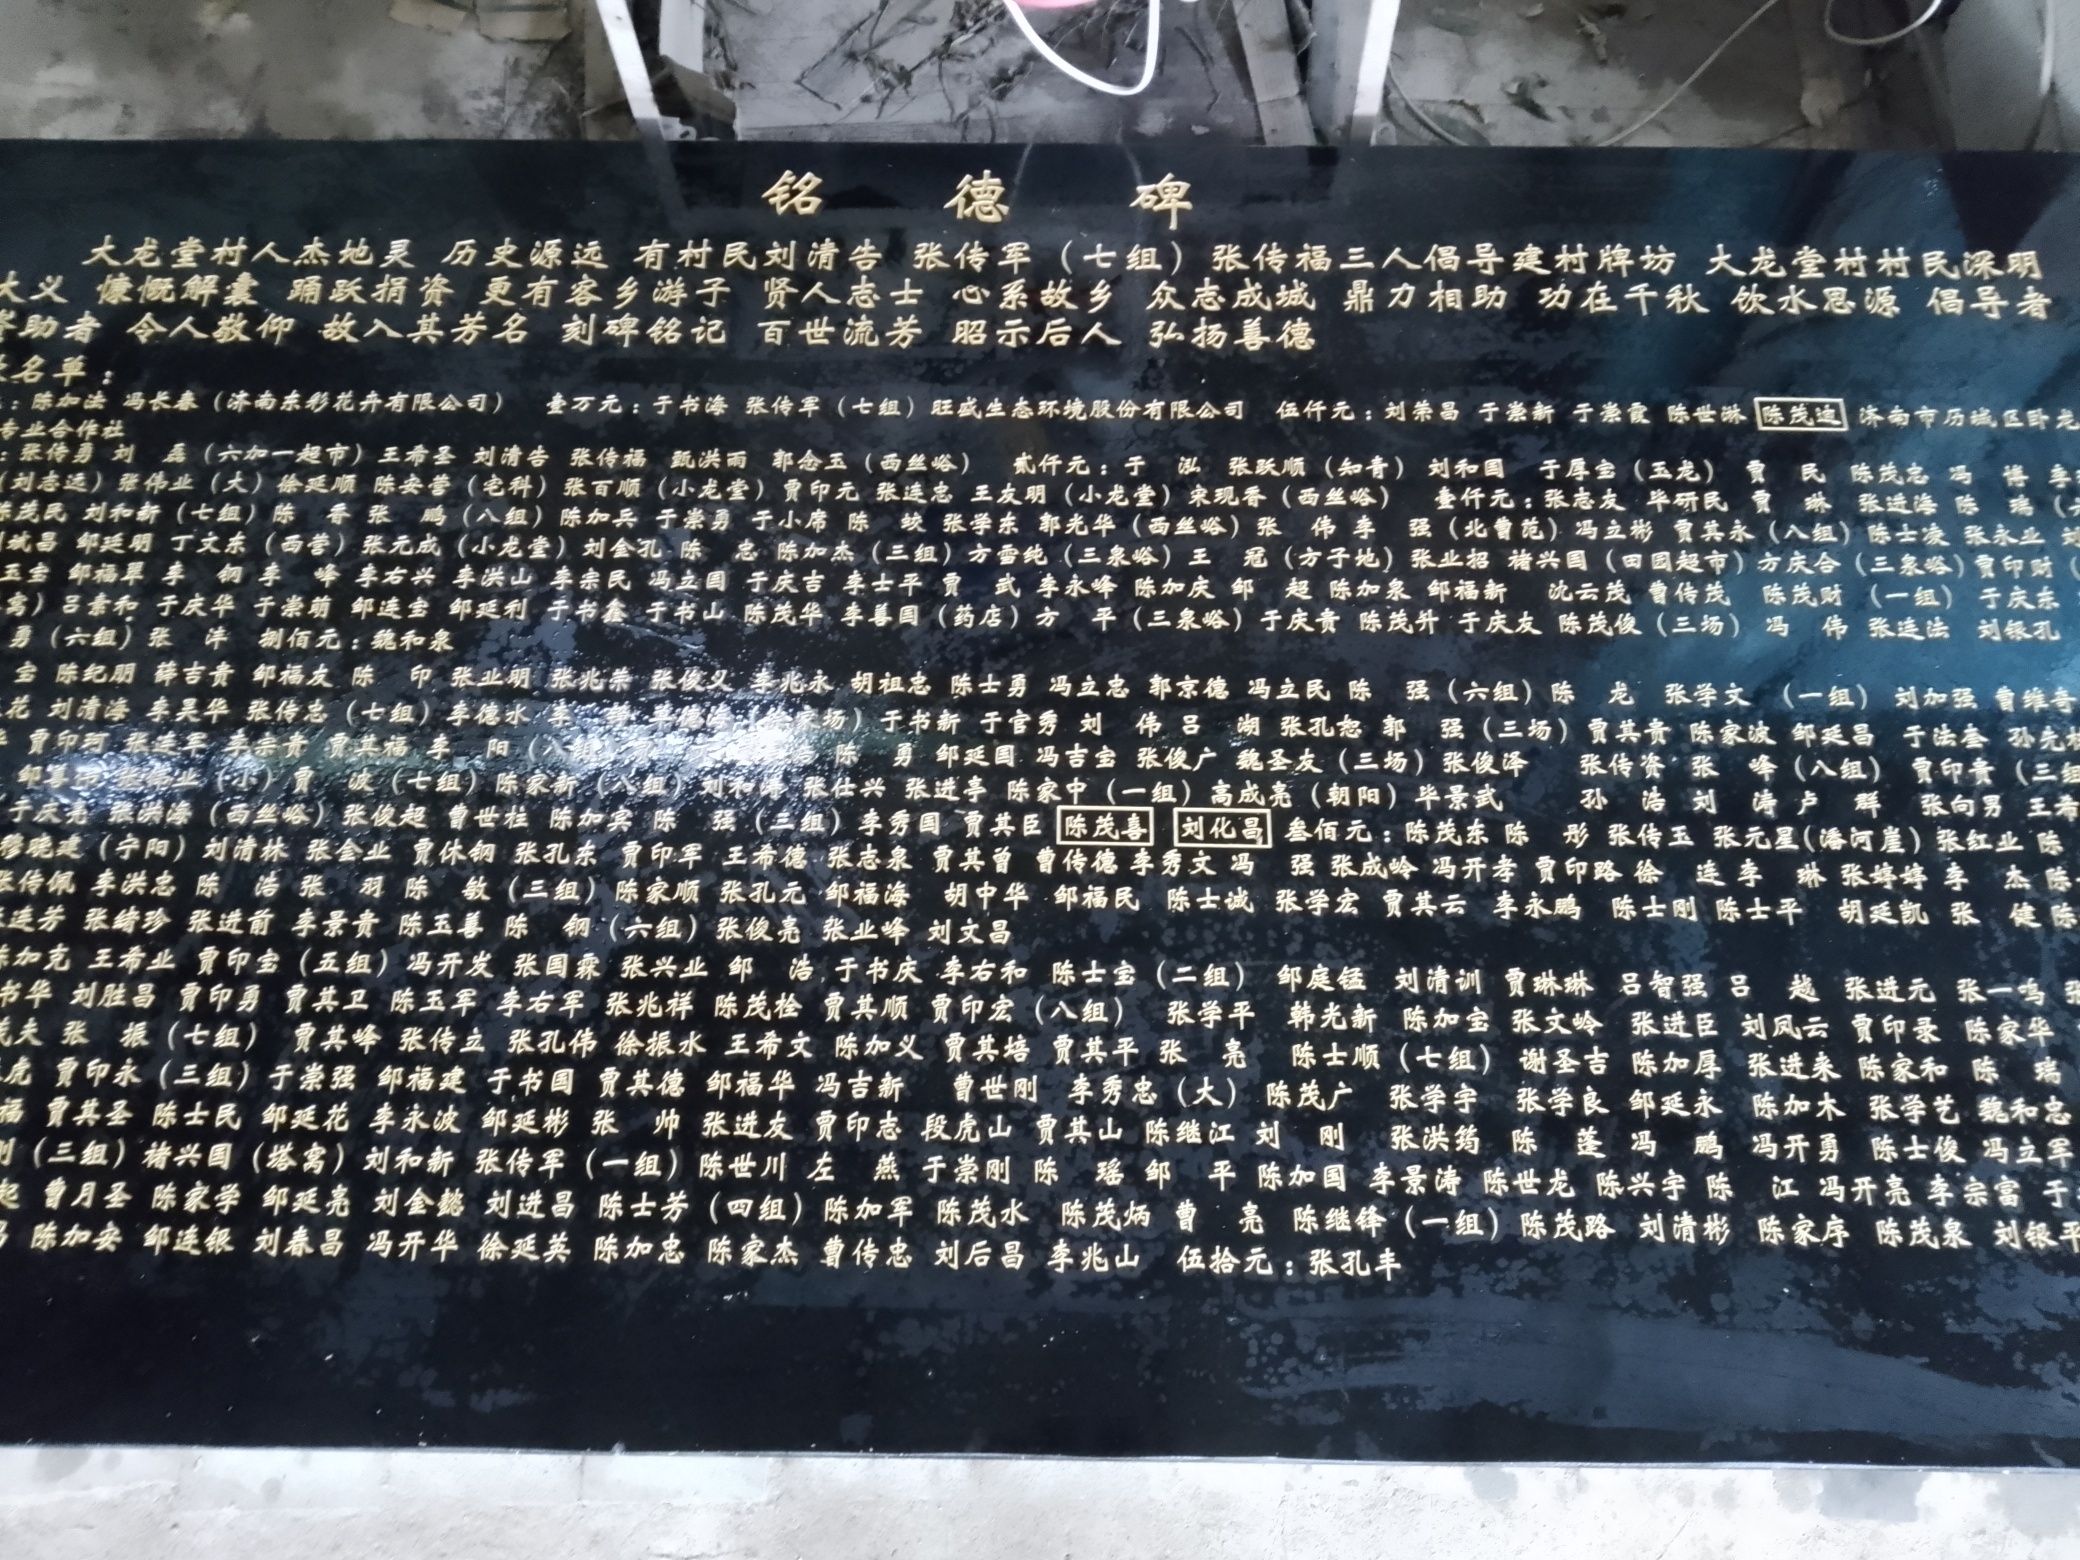 铭 德 碑
大龙堂村人杰地灵 历史源远 有村民刘清告 张传军（七组）张传福三人倡导建村牌坊 大龙堂村村民深明
大义 慷慨解囊 踊跃捐资 更有客乡游子 贤人志士 心系故乡 众志成城 鼎力相助 功在千秋 饮水思源 倡导者
助者 令人敬仰 故入其芳名 刻碑铭记 百世流芳 昭示后人 弘扬善德
名单：
：陈加法 冯长春（济南东彩花卉有限公司） 壹万元：于书海 张传军（七组）旺盛生态环境股份有限公司 伍仟元：刘荣昌 于崇新 于崇霞 陈世淋 陈茂迪 济南市历城区卧龙
专业合作社
：张传勇 刘 磊（六加一超市）王希圣 刘清告 张传福 甄洪雨 郭念玉（西丝峪） 贰仟元：于 泓 张跃顺（知青） 刘和国 于厚宝（玉龙） 贾 民 陈茂忠 冯 博 李
（刘志远）张伟业（大）徐延顺 陈安营（宅科）张百顺（小龙堂）贾印元 张连忠 王友明（小龙堂）宋现香（西丝峪） 壹仟元：张志友 毕研民 贾 琳 张进海 陈 瑞
陈茂民 刘和新（七组）陈 香 张 鹏（八组）陈加兵 于崇勇 于小席 陈 蛟 张学东 郭光华（西丝峪）张 伟 李 强（北曹范）冯立彬 贾其永（八组）陈士凌 张永业
斌昌 邹延明 丁文东（西营）张元成（小龙堂）刘金孔 陈 忠 陈加杰（三组）方雪纯（三泉峪）王 冠（方子地）张业招 褚兴国（田园超市）方庆合（三泉峪）贾印财
玉宝 邹福翠 李 钢 李 峰 李右兴 李洪山 李宗民 冯立国 于庆吉 李士平 贾 武 李永峰 陈加庆 邹 超 陈加泉 邹福新 沈云茂 曹传茂 陈茂财（一组）于庆东
窝）吕素和 于庆华 于崇萌 邹连宝 邹延利 于书鑫 于书山 陈茂华 李善国（药店）方 平（三泉峪）于庆贵 陈茂升 于庆友 陈茂俊（三场）冯 伟 张连法 刘银孔
勇（六组）张 洋 捌佰元：魏和泉
宝 陈纪朋 薛吉贵 邹福友 陈 印 张业明 张兆荣 张俊义 李兆永 胡祖忠 陈士勇 冯立忠 郭京德 冯立民 陈 强（六组）陈 龙 张学文（一组） 刘加强 曹维奇
花 刘清海 李昊华 张传忠（七组）李德水 李 于书新 于官秀 刘 伟 吕 湖 张孔恕 郭 强（三场）贾其贵 陈家波 邹延昌 于法奎 孙先
贾印珂 张进军 李宗贵 贾其福 李 阳（八组） 陈 勇 邹延国 冯吉宝 张俊广 魏圣友（三场）张俊泽 张传资 张 峰（八组） 贾印贵（三组
邹 张伟业（小）贾 波（七组）陈家新（八组）刘和涛 张仕兴 张进亭 陈家中（一组）高成亮（朝阳）毕景武 孙 浩 刘 涛 卢 群 张向男 王希
于庆亮 张洪海（西丝峪）张俊超 曹世柱 陈加宾 陈 强（三组）李秀国 贾其臣 陈茂喜 刘化昌 叁佰元：陈茂东 陈 彤 张传玉 张元星（潘河崖）张红业 陈
穆晓建（宁阳）刘清林 张会业 贾休钢 张孔东 贾印军 王希德 张志泉 贾其曾 曹传德 李秀文 冯 强 张成岭 冯开孝 贾印路 徐 连 李 琳 张婷婷 李 杰 陈
张传佩 李洪忠 陈 浩 张 羽 陈 敏（三组）陈家顺 张孔元 邹福海 胡中华 邹福民 陈士诚 张学宏 贾其云 李永鹏 陈士刚 陈士平 胡延凯 张 健 陈
连芳 张绪珍 张进前 李景贵 陈玉善 陈 钢（六组）张俊亮 张业峰 刘文昌
陈加克 王希业 贾印宝（五组）冯开发 张国霖 张兴业 邹 浩 于书庆 李右和 陈士宝（二组） 邹庭锰 刘清训 贾琳琳 吕智强 吕 越 张进元 张一鸣 张
书华 刘胜昌 贾印勇 贾其卫 陈玉军 李右军 张兆祥 陈茂栓 贾其顺 贾印宏（八组） 张学平 韩光新 陈加宝 张文岭 张进臣 刘凤云 贾印录 陈家华
茂夫 张 振（七组） 贾其峰 张传立 张孔伟 徐振水 王希文 陈加义 贾其培 贾其平 张 亮 陈士顺（七组） 谢圣吉 陈加厚 张进来 陈家和 陈 瑞
虎 贾印永（三组）于崇强 邹福建 于书国 贾其德 邹福华 冯吉新 曹世刚 李秀忠（大） 陈茂广 张学宇 张学良 邹延永 陈加木 张学艺 魏和忠
福 贾其圣 陈士民 邹延花 李永波 邹延彬 张 帅 张进友 贾印志 段虎山 贾其山 陈继江 刘 刚 张洪筠 陈 蓬 冯 鹏 冯开勇 陈士俊 冯立军
（三组）褚兴国（塔窝）刘和新 张传军（一组）陈世川 左 燕 于崇刚 陈 瑶 邹 平 陈加国 李景涛 陈世龙 陈兴宇 陈 江 冯开亮 李宗富 于
起 曹月圣 陈家学 邹延亮 刘金懿 刘进昌 陈士芳（四组）陈加军 陈茂水 陈茂炳 曹 亮 陈继锋（一组）陈茂路 刘清彬 陈家序 陈茂泉 刘银平
陈加安 邹连银 刘春昌 冯开华 徐延英 陈加忠 陈家杰 曹传忠 刘后昌 李兆山 伍拾元：张孔丰